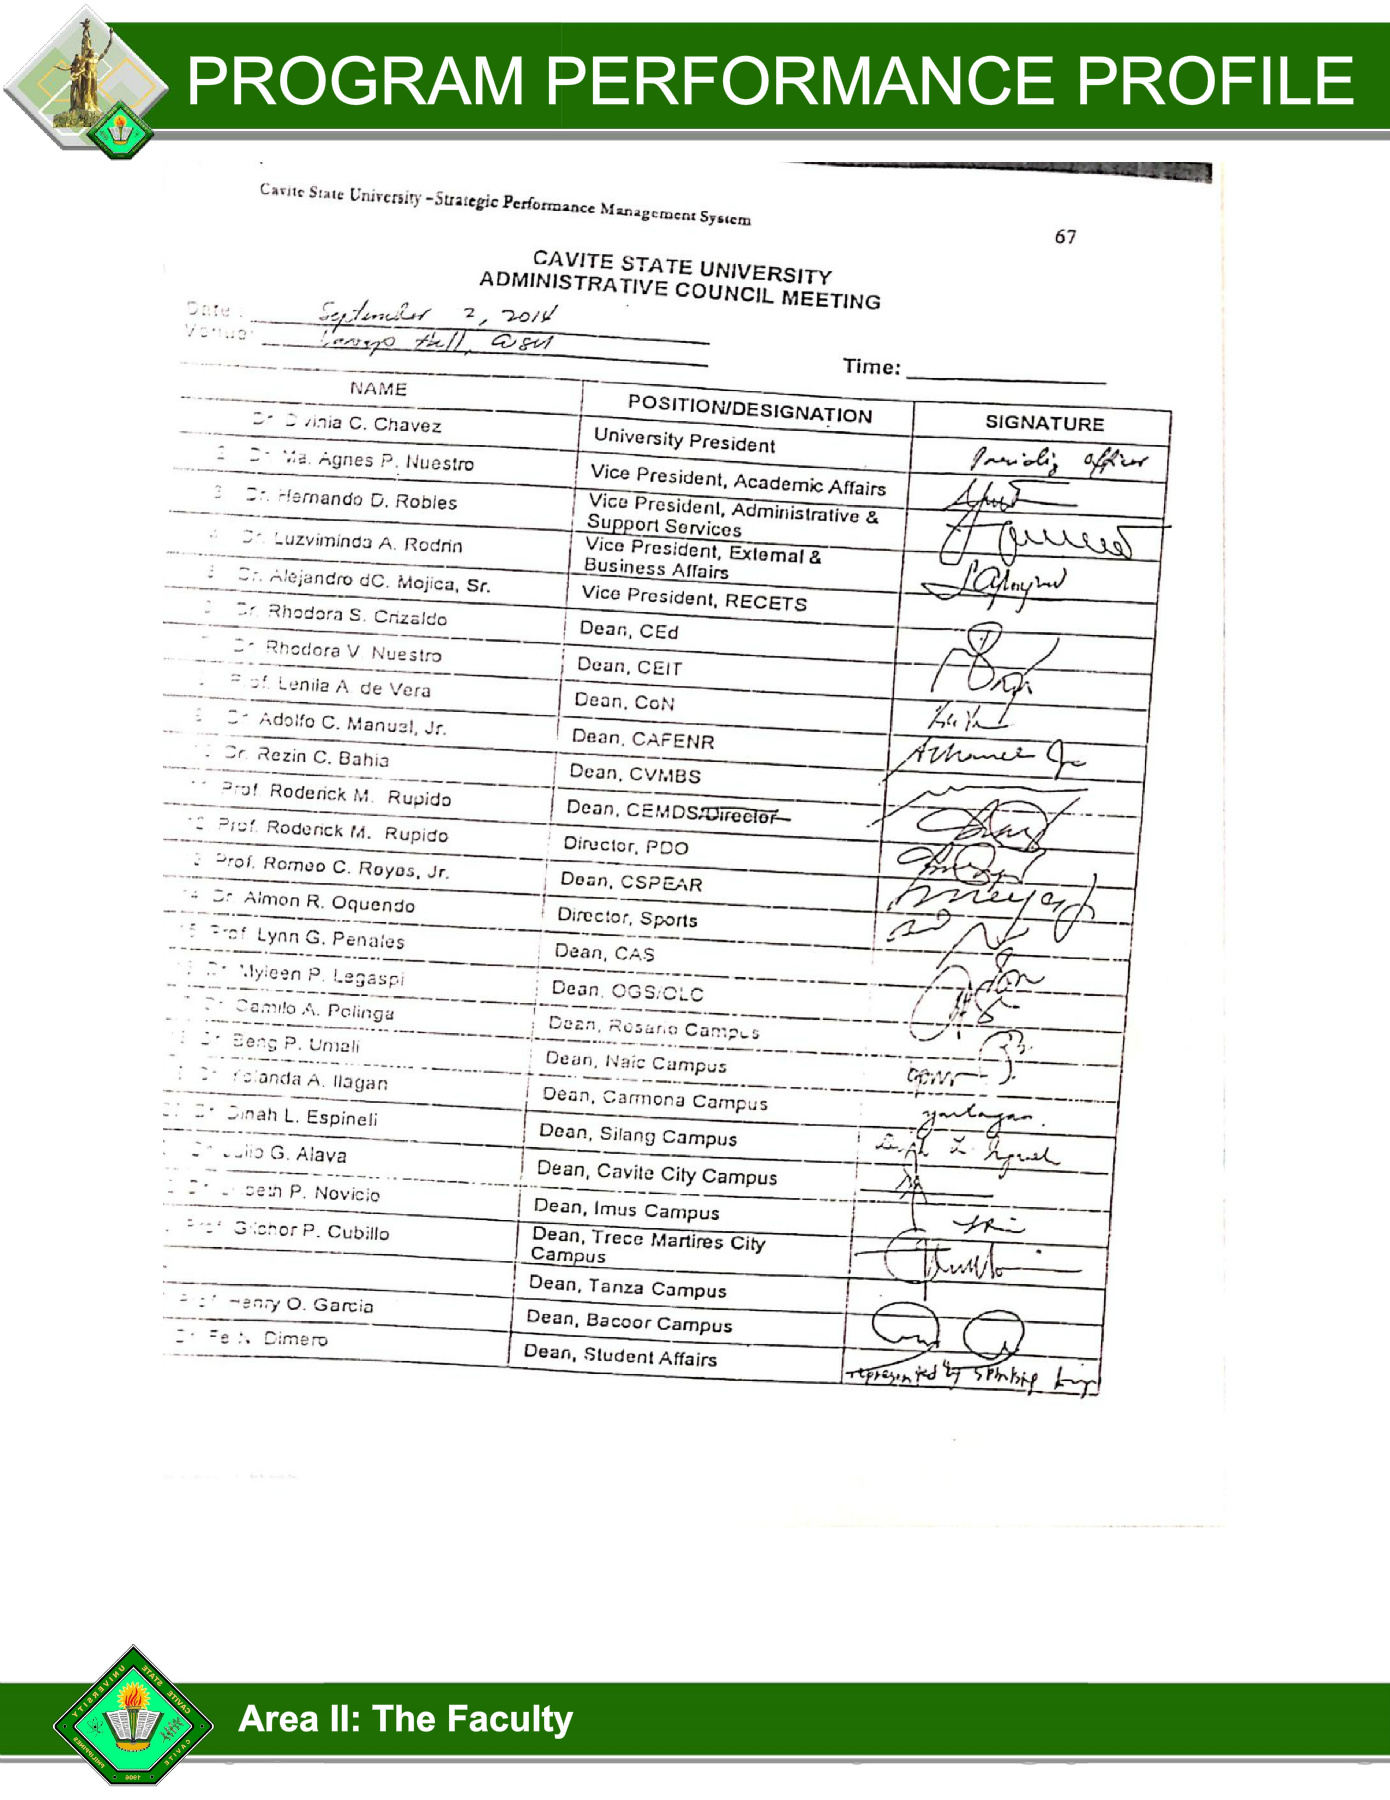 PROGRAM PERFORMANCE PROFILE
Cavite State University – Strategic Performance Management System
67
CAVITE STATE UNIVERSITY
ADMINISTRATIVE COUNCIL MEETING
Date: September 2, 2014
Venue: Hall, CvSU
Time:
NAME POSITION/DESIGNATION SIGNATURE
C. Chavez University President Presiding Officer
Dr. Ma. Agnes P. Nuestro Vice President, Academic Affairs
3 Dr. Hernando D. Robles Vice President, Administrative &
Support Services
4 Dr. Luzviminda A. Rodrin Vice President, External &
Business Affairs
5 Dr. Alejandro dC. Mojica, Sr. Vice President, RECETS
Dr. Rhodora S. Crizaldo Dean, CEd
Dr. Rhodora V. Nuestro Dean, CEIT
Prof. Lenila A. de Vera Dean, CoN
Dr. Adolfo C. Manuel, Jr. Dean, CAFENR
Dr. Rezin C. Bahia Dean, CVMBS
Prof. Roderick M. Rupido Dean, CEMDS/Director
12 Prof. Roderick M. Rupido Director, PDO
Prof. Romeo C. Royos, Jr. Dean, CSPEAR
14 Dr. Almon R. Oquendo Director, Sports
15 Prof. Lynn G. Penales Dean, CAS
Dr. Myleen P. Legaspi Dean, OGS/OLC
Dr. Camilo A. Polinga Dean, Rosario Campus
Dr. Beng P. Umali Dean, Naic Campus
Dr. Yolanda A. Ilagan Dean, Carmona Campus
Dr. Dinah L. Espineli Dean, Silang Campus
Julio G. Alava Dean, Cavite City Campus
P. Novicio Dean, Imus Campus
Prof. Gilchor P. Cubillo Dean, Trece Martires City
Campus
Dean, Tanza Campus
Prof. Henry O. Garcia Dean, Bacoor Campus
Dimero Dean, Student Affairs represented by
Area II: The Faculty
CAVITE STATE UNIVERSITY
CAVITE
PHILIPPINES
1906